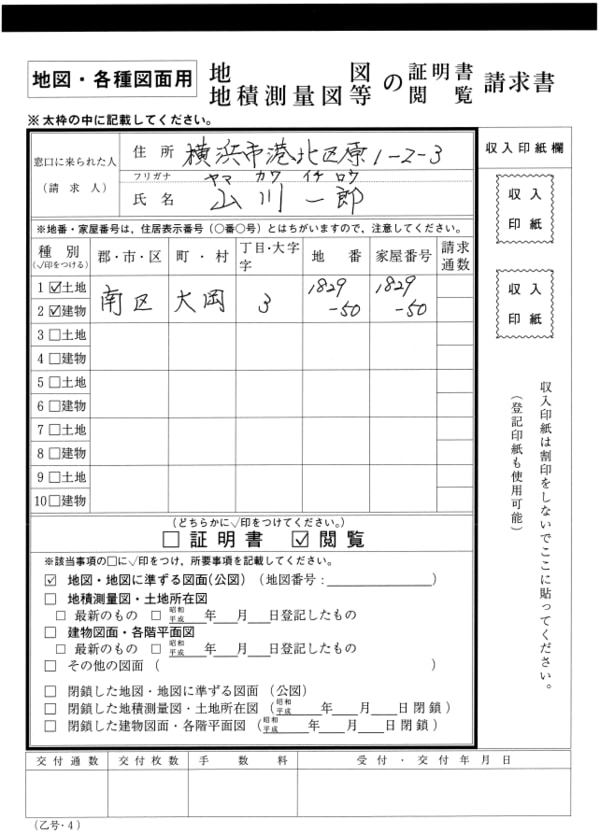 地図・各種図面用
地図
地積測量図等
の
証明書
閲覧
請求書
※太枠の中に記載してください。
窓口に来られた人
(請求人)
住所 横浜市港北区原1-2-3
フリガナ ヤマ カワ イチ ロウ
氏名 山川一郎
収入印紙欄
※地番・家屋番号は，住居表示番号（○番○号）とはちがいますので，注意してください。
種別
(√印をつける)
郡・市・区
町・村
丁目・大字
字
地番
家屋番号
請求
通数
1 ☑土地
2 ☑建物
南区
大岡
3
1829
-50
1829
-50
3 □土地
4 □建物
5 □土地
6 □建物
7 □土地
8 □建物
9 □土地
10 □建物
収入
印紙
収入
印紙
収入印紙は割印をしないでここに貼ってください。
（登記印紙も使用可能）
(どちらかに√印をつけてください。)
□ 証明書 ☑ 閲覧
※該当事項の□に√印をつけ，所要事項を記載してください。
☑ 地図・地図に準ずる図面(公図)（地図番号：　　　）
□ 地積測量図・土地所在図
□ 最新のもの □ 昭和 平成 年 月 日登記したもの
□ 建物図面・各階平面図
□ 最新のもの □ 昭和 平成 年 月 日登記したもの
□ その他の図面（　　　）
□ 閉鎖した地図・地図に準ずる図面（公図）
□ 閉鎖した地積測量図・土地所在図（昭和 平成 年 月 日閉鎖）
□ 閉鎖した建物図面・各階平面図（昭和 平成 年 月 日閉鎖）
交付通数 交付枚数 手数料 受付・交付年月日
(乙号・4)